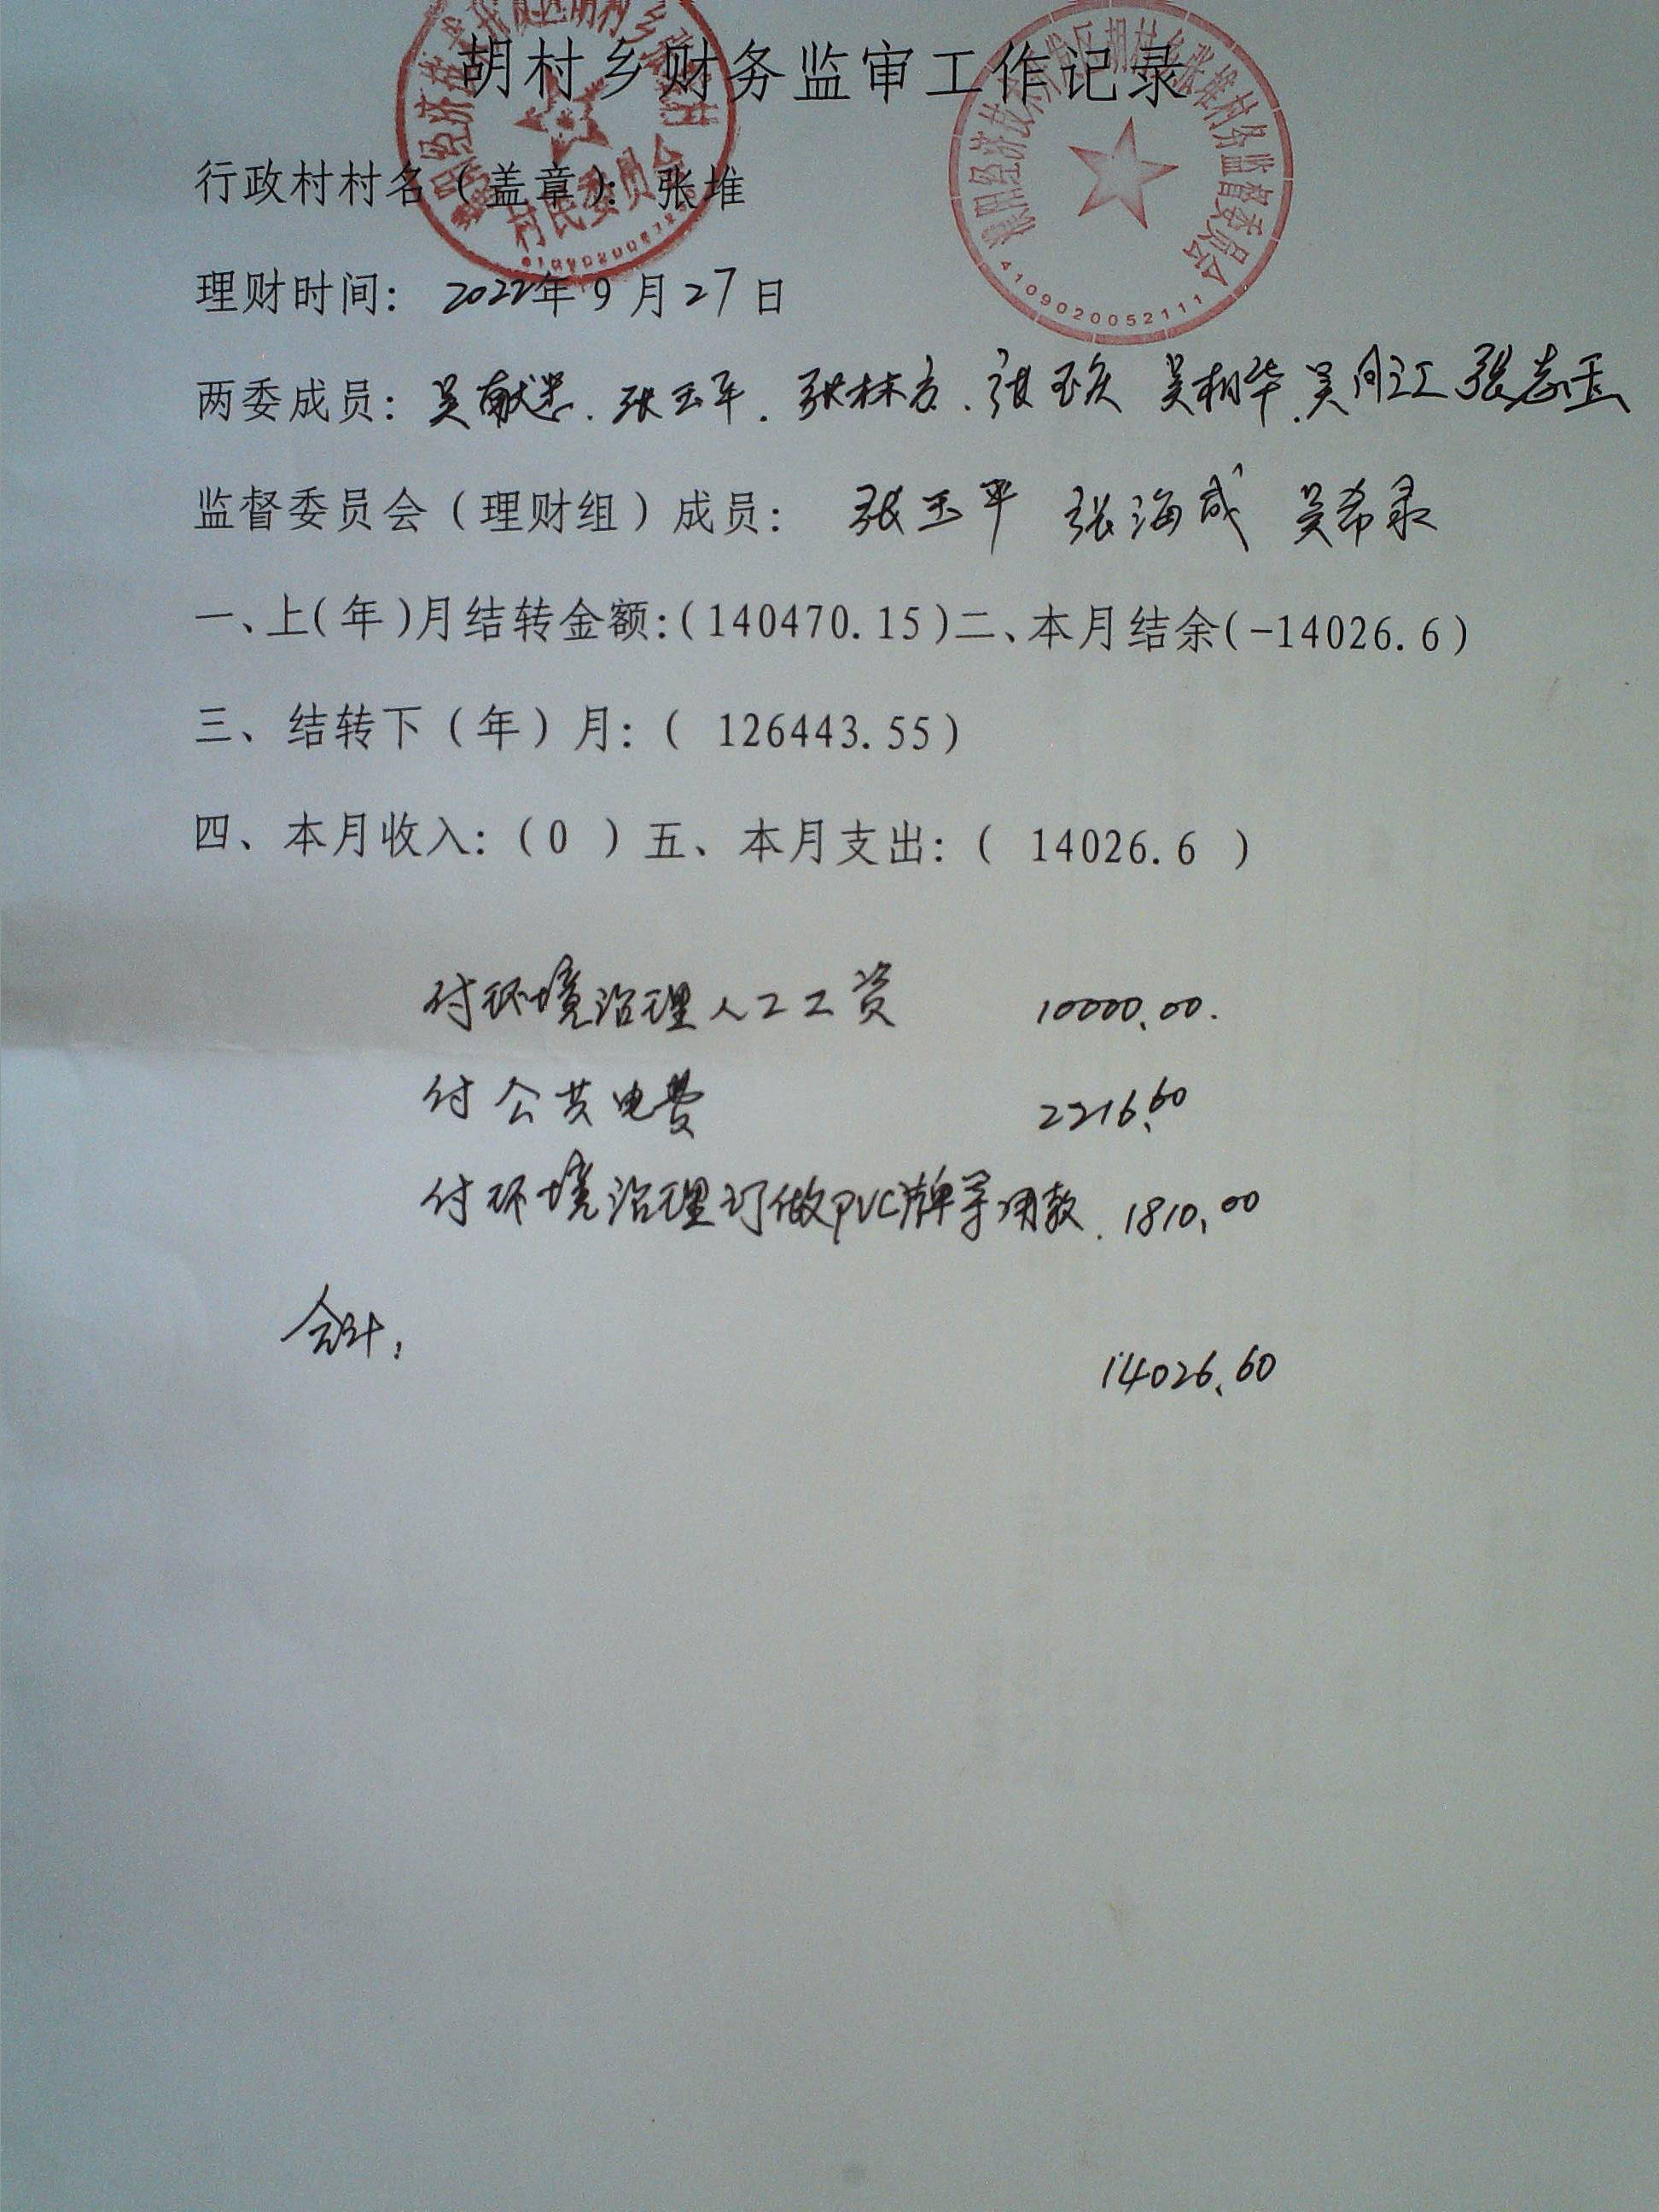 胡村乡财务监审工作记录
行政村村名（盖章）：张堆
村民委员会
濮阳经济技术开发区胡村乡张堆村务监督委员会
4109020052111
理财时间：2022年9月27日
两委成员：吴献忠、张玉平、张林方、张 吴相华、吴 张志玉
监督委员会（理财组）成员：张玉平 张海成 吴希录
一、上(年)月结转金额:(140470.15)二、本月结余(-14026.6)
三、结转下（年）月:( 126443.55)
四、本月收入:(0 )五、本月支出:( 14026.6 )
付环境治理人工工资 10000.00.
付公共电费 2216.60
付环境治理订做PVC牌等用款. 1810.00
合计: 14026.60